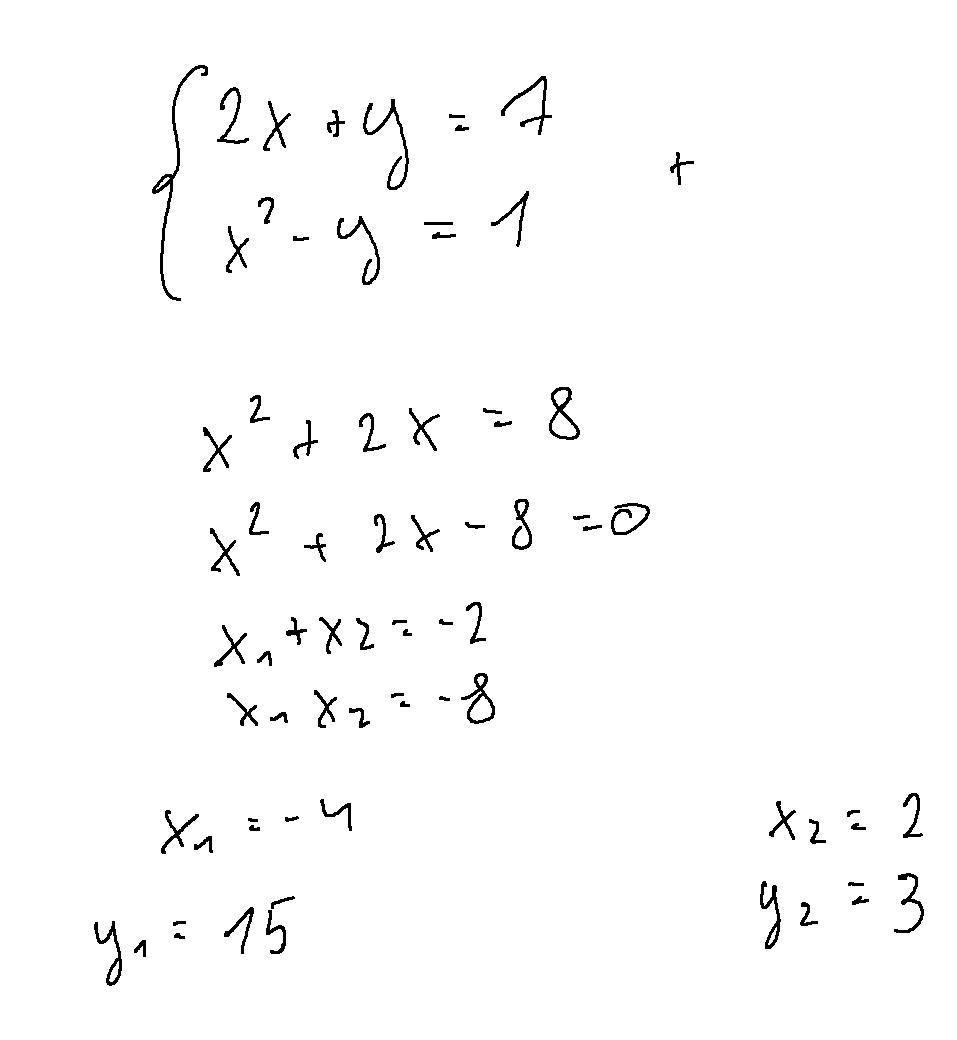 2x + y = 7
+
x² - y = 1
x² + 2x = 8
x² + 2x - 8 = 0
x₁ + x₂ = -2
x₁ x₂ = -8
x₁ = -4 x₂ = 2
y₁ = 15 y₂ = 3